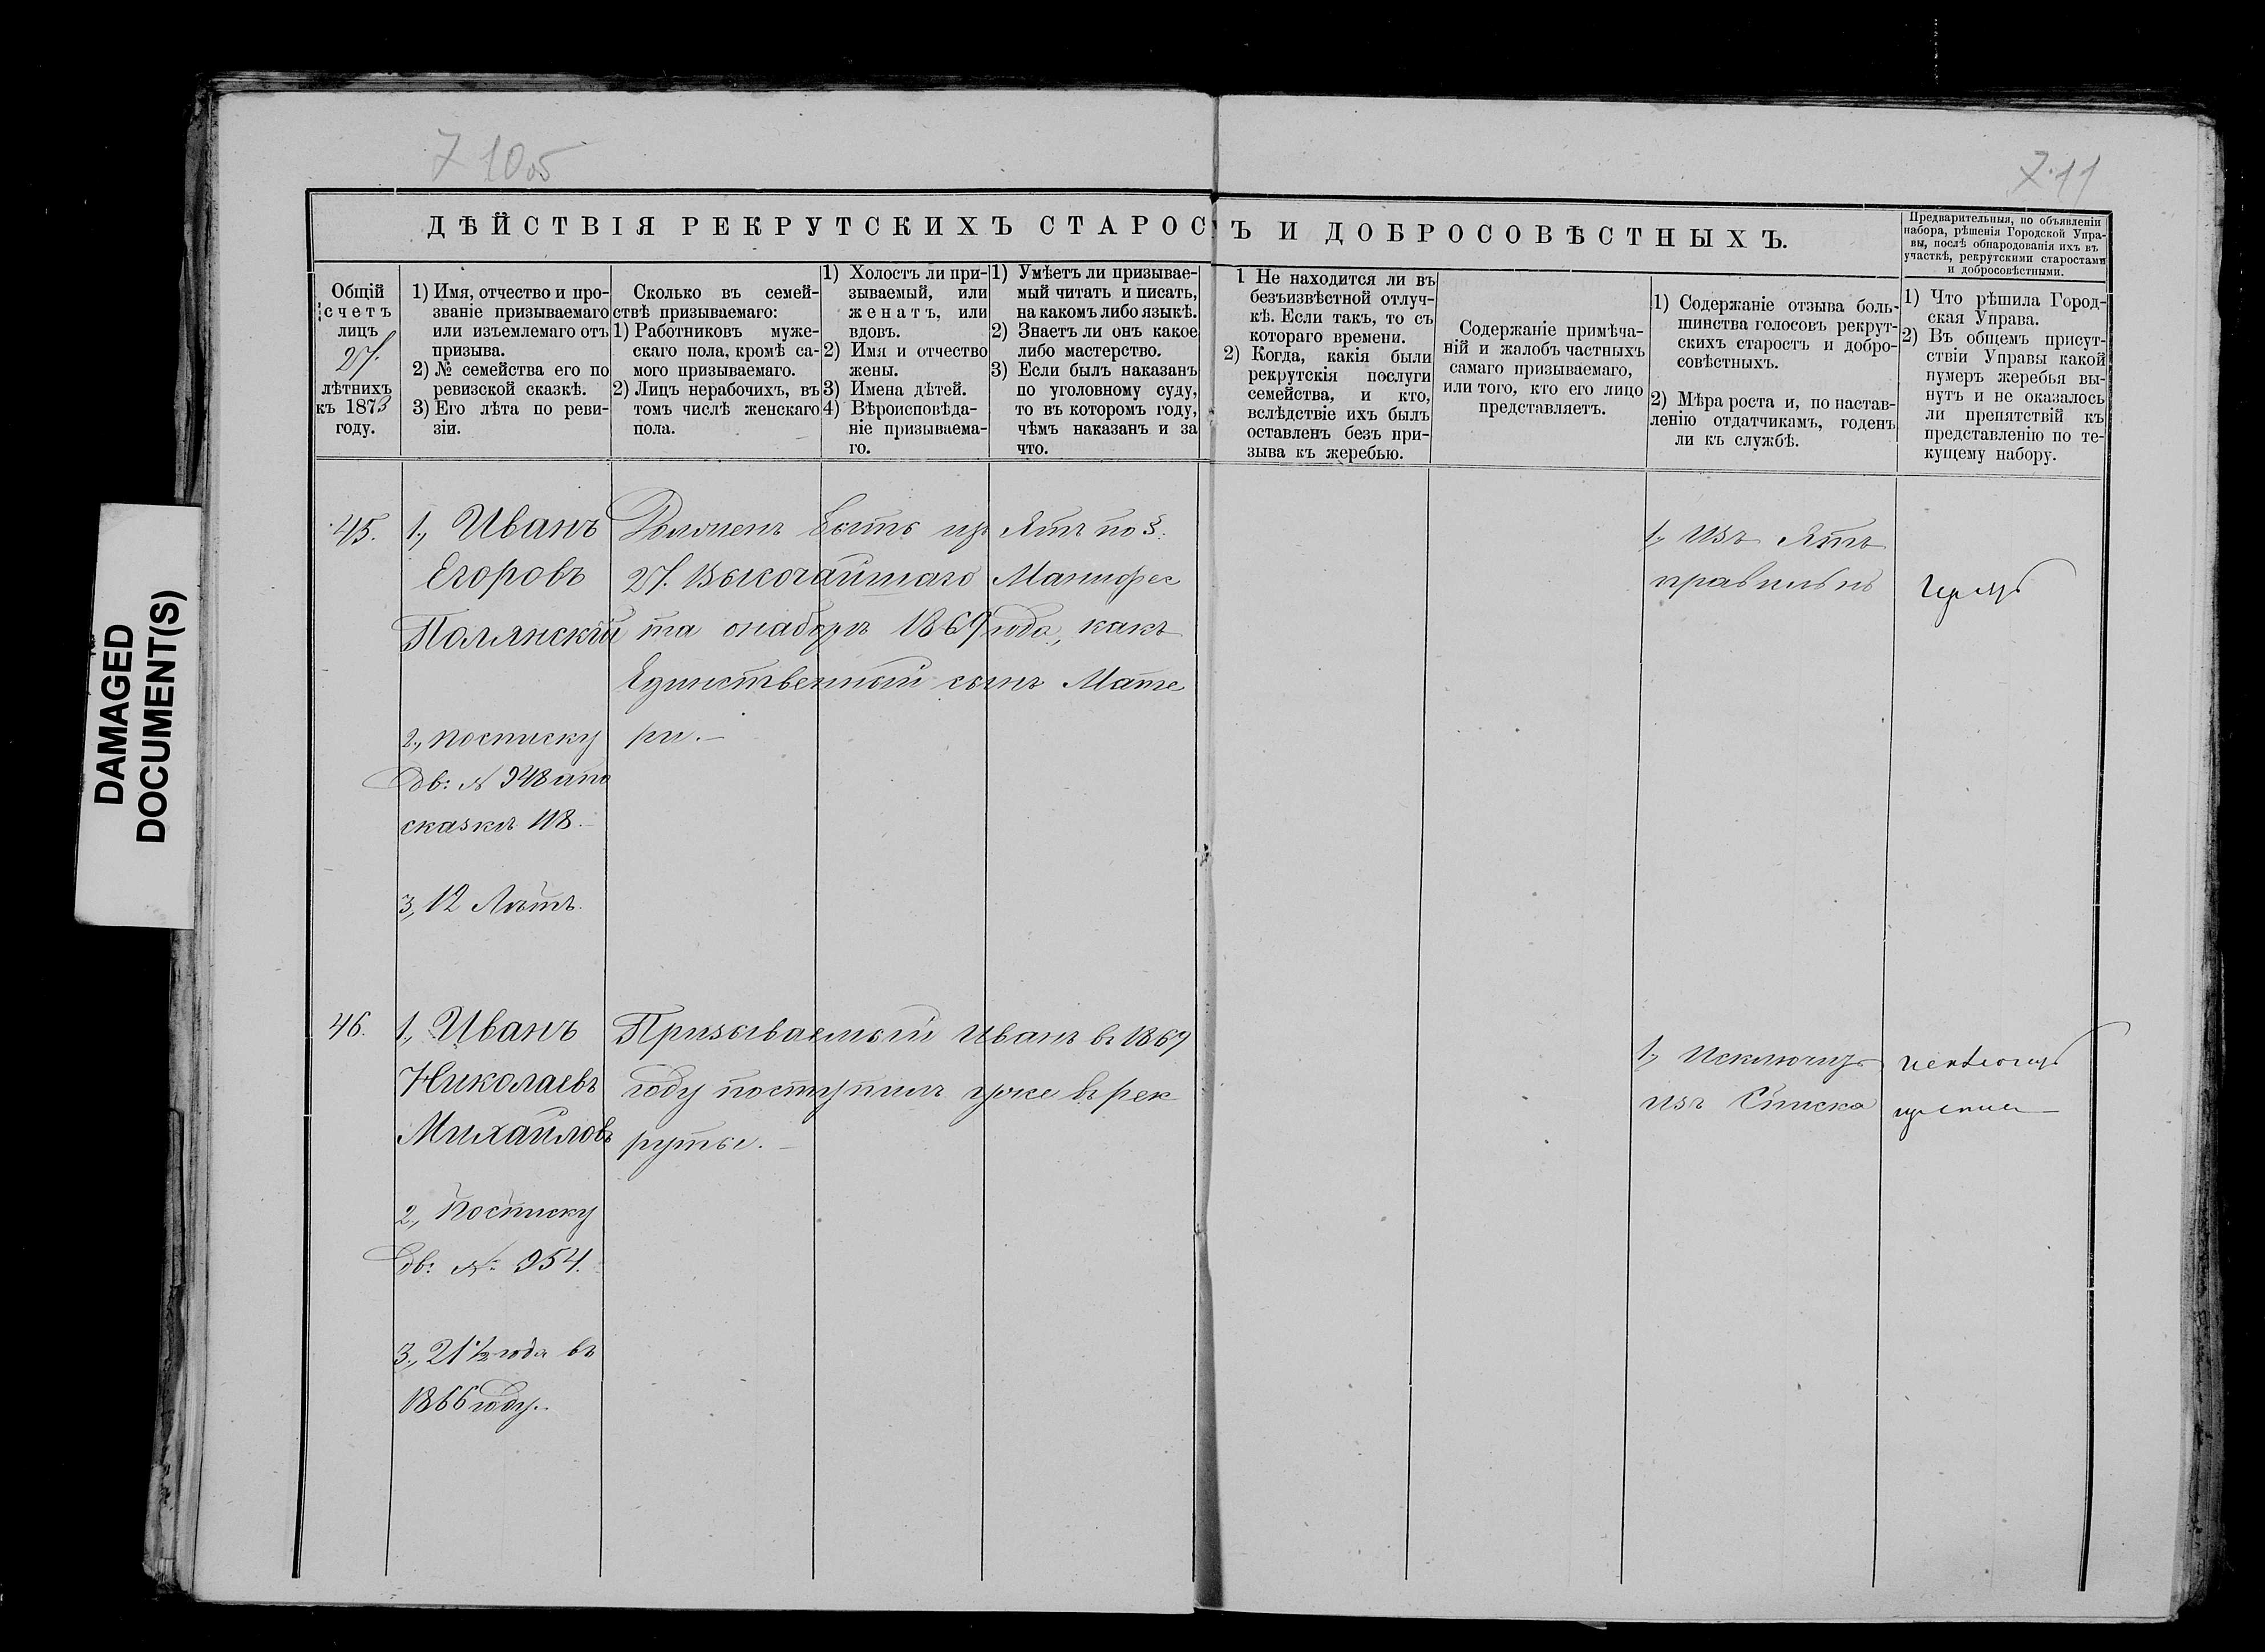 7 10 об
7.11
ДѢЙСТВІЯ РЕКРУТСКИХЪ СТАРОСТЪ И ДОБРОСОВѢСТНЫХЪ.
Предварительныя, по объявленіи
набора, рѣшенія Городской Упра-
вы, послѣ обнародованія ихъ въ
участкѣ, рекрутскими старостами
и добросовѣстными.
Общій
счетъ
лицъ
27.
лѣтнихъ
къ 1873
году.
1) Имя, отчество и про-
званіе призываемаго
или изъемлемаго отъ
призыва.
2) № семейства его по
ревизской сказкѣ.
3) Его лѣта по реви-
зіи.
Сколько въ семей-
ствѣ призываемаго:
1) Работниковъ муже-
скаго пола, кромѣ са-
мого призываемаго.
2) Лицъ нерабочихъ, въ
томъ числѣ женскаго
пола.
1) Холостъ ли при-
зываемый, или
женатъ, или
вдовъ.
2) Имя и отчество
жены.
3) Имена дѣтей.
4) Вѣроисповѣда-
ніе призываема-
го.
1) Умѣетъ ли призывае-
мый читать и писать,
на какомъ либо языкѣ.
2) Знаетъ ли онъ какое
либо мастерство.
3) Если былъ наказанъ
по уголовному суду,
то въ которомъ году,
чѣмъ наказанъ и за
что.
1 Не находится ли въ
безъизвѣстной отлуч-
кѣ. Если такъ, то съ
котораго времени.
2) Когда, какія были
рекрутскія послуги
семейства, и кто,
вслѣдствіе ихъ былъ
оставленъ безъ при-
зыва къ жеребью.
Содержаніе примѣча-
ній и жалобъ частныхъ
самаго призываемаго,
или того, кто его лицо
представляетъ.
1) Содержаніе отзыва боль-
шинства голосовъ рекрут-
скихъ старостъ и добро-
совѣстныхъ.
2) Мѣра роста и, по настав-
ленію отдатчикамъ, годенъ
ли къ службѣ.
1) Что рѣшила Город-
ская Управа.
2) Въ общемъ присут-
ствіи Управы какой
нумеръ жеребья вы-
нутъ и не оказалось
ли препятствій къ
представленію по те-
кущему набору.
DAMAGED
DOCUMENT(S)
45.
1., Иванъ
Егоровъ
Полянскій
2., по списку
Дв: № 948 и по
сказкѣ 118.
3., 12 Лѣтъ.
Долженъ быть изъ Ятъ по §.
27. Высочайшаго Манифес
та о наборѣ 1869 года, какъ
Единственный сынъ Мате
ри.
1., Изъ Ятъ
правильнъ
46.
1., Иванъ
Николаевъ
Михайловъ
2., По списку
Дв: № 954.
3., 21 1/2 года въ
1866 году.
Призываемый Иванъ въ 1869
году поступилъ уже въ рек
руты.
1., Исключить
изъ Списка